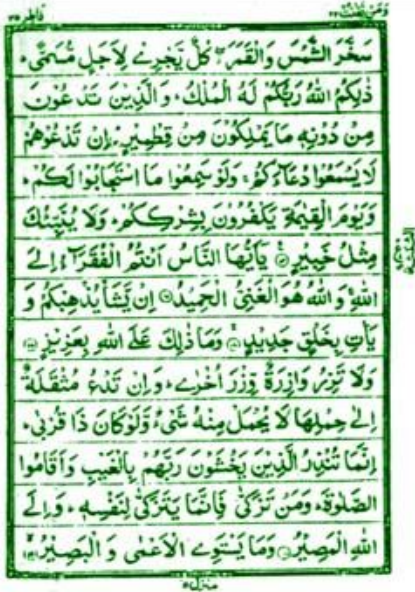 ومن يقنت ٢٢
فاطر ٣٥
سَخَّرَ الشَّمْسَ وَالْقَمَرَ ۖ كُلٌّ يَّجْرِيْ لِاَجَلٍ مُّسَمًّى ۚ
ذٰلِكُمُ اللّٰهُ رَبُّكُمْ لَهُ الْمُلْكُ ۚ وَالَّذِيْنَ تَدْعُوْنَ
مِنْ دُوْنِهٖ مَا يَمْلِكُوْنَ مِنْ قِطْمِيْرٍ ۚ اِنْ تَدْعُوْهُمْ
لَا يَسْمَعُوْا دُعَآءَكُمْ ۚ وَلَوْ سَمِعُوْا مَا اسْتَجَابُوْا لَكُمْ ۚ
وَيَوْمَ الْقِيٰمَةِ يَكْفُرُوْنَ بِشِرْكِكُمْ ۚ وَلَا يُنَبِّئُكَ
مِثْلُ خَبِيْرٍ يٰٓاَيُّهَا النَّاسُ اَنْتُمُ الْفُقَرَآءُ اِلَى
اللّٰهِ ۚ وَاللّٰهُ هُوَ الْغَنِيُّ الْحَمِيْدُ اِنْ يَّشَاْ يُذْهِبْكُمْ وَ
يَاْتِ بِخَلْقٍ جَدِيْدٍ وَمَا ذٰلِكَ عَلَى اللّٰهِ بِعَزِيْزٍ
وَلَا تَزِرُ وَازِرَةٌ وِّزْرَ اُخْرٰى ۚ وَاِنْ تَدْعُ مُثْقَلَةٌ
اِلٰى حِمْلِهَا لَا يُحْمَلْ مِنْهُ شَيْءٌ وَّلَوْ كَانَ ذَا قُرْبٰى ۚ
اِنَّمَا تُنْذِرُ الَّذِيْنَ يَخْشَوْنَ رَبَّهُمْ بِالْغَيْبِ وَاَقَامُوا
الصَّلٰوةَ ۚ وَمَنْ تَزَكّٰى فَاِنَّمَا يَتَزَكّٰى لِنَفْسِهٖ ۚ وَاِلَى
اللّٰهِ الْمَصِيْرُ وَمَا يَسْتَوِي الْاَعْمٰى وَالْبَصِيْرُ
منزل ٥